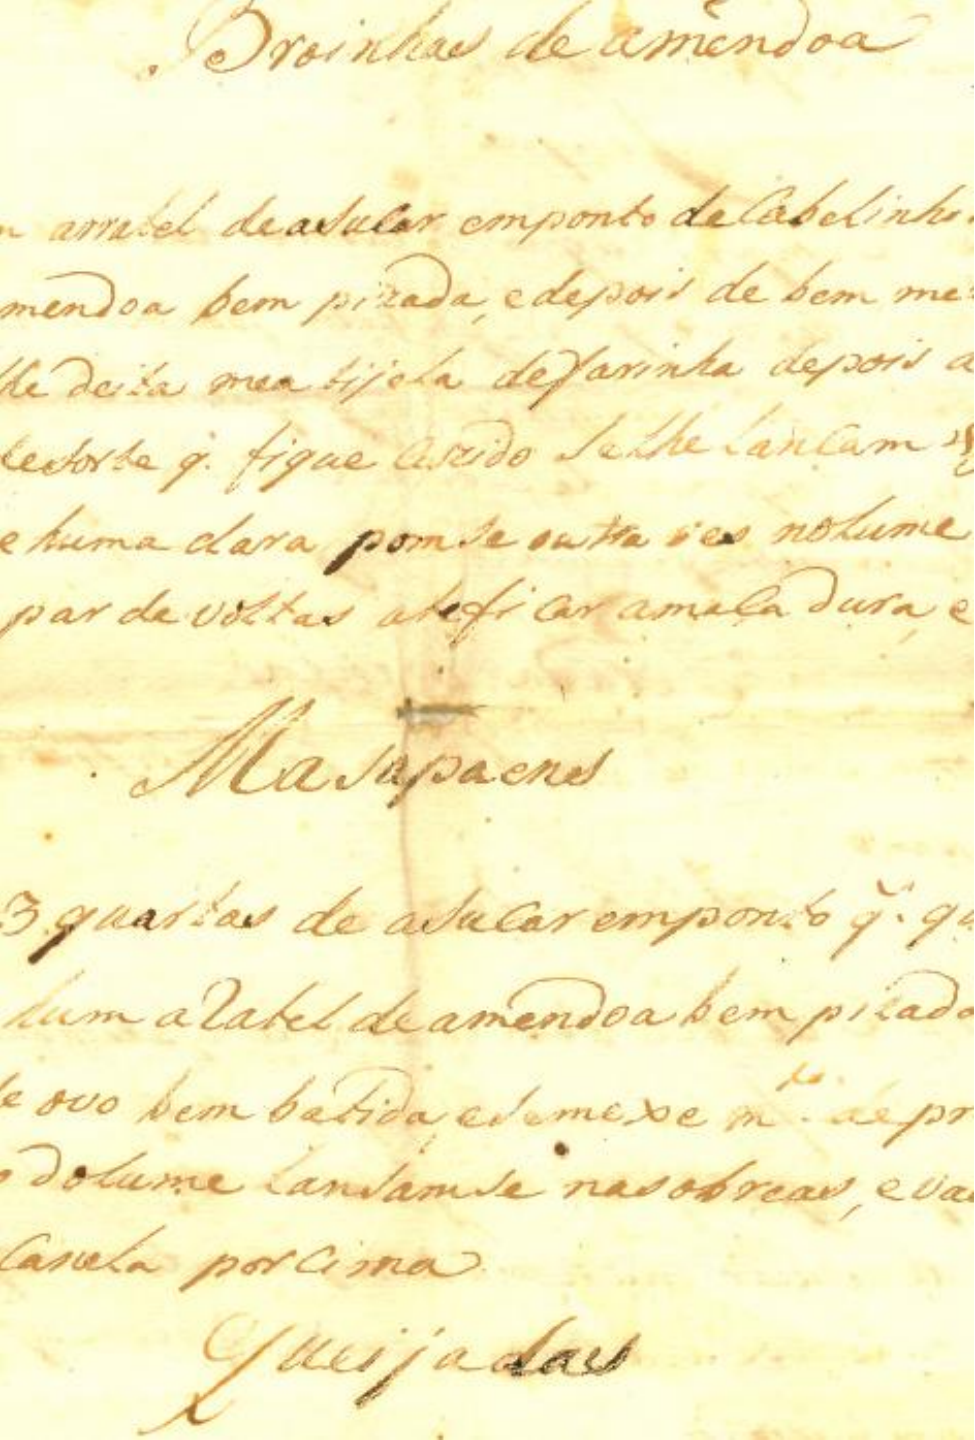 Broinhas de amêndoa
arratel de asucar em ponto de Cabelinho
mendoa bem pizada, e depois de bem me
lhe deita mea tijela de farinha depois
de sorte q. fique Cozido se lhe lancam
e huma clara pomse outra ves no lume
par de voltas ate ficar a maca dura, e
Masapaens
3 quartas de asucar em ponto q. qu
hum aRatel de amendoa bem pizado
de ovo bem batida, e se mexe m.to de pr
do lume lansamse nas obreas, e vae
Canela por sima
Queijadas